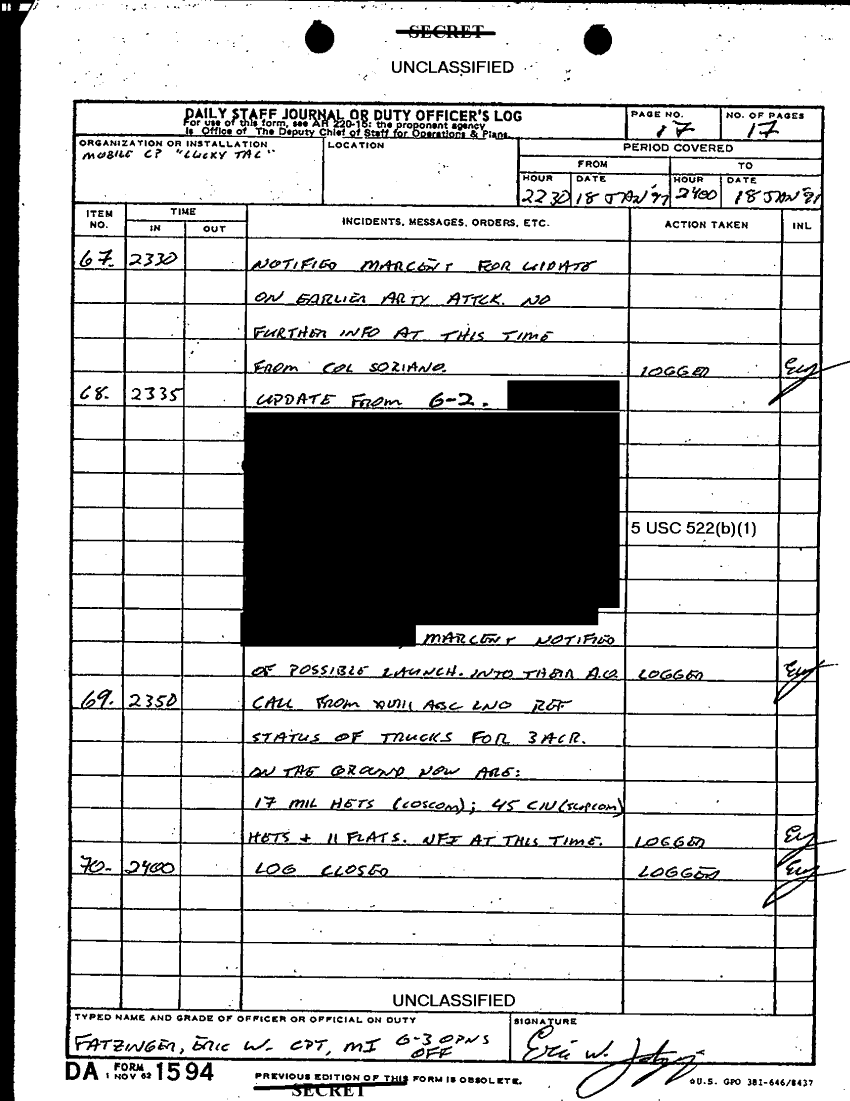 SECRET
UNCLASSIFIED
DAILY STAFF JOURNAL OR DUTY OFFICER'S LOG
For use of this form, see AR 220-15: the proponent agency
is Office of The Deputy Chief of Staff for Operations & Plans.
PAGE NO.
17
NO. OF PAGES
17
ORGANIZATION OR INSTALLATION
MOBILE CP "LUCKY TAC"
LOCATION
PERIOD COVERED
FROM
TO
HOUR DATE HOUR DATE
2230 18 JAN '91 2400 18 JAN '91
ITEM NO. TIME IN OUT INCIDENTS, MESSAGES, ORDERS, ETC. ACTION TAKEN INL
67. 2330 NOTIFIED MARCENT FOR UPDATE
ON EARLIER ARTY ATTCK. NO
FURTHER INFO AT THIS TIME
FROM COL SORIANO. LOGGED
68. 2335 UPDATE FROM G-2.
5 USC 522(b)(1)
MARCENT NOTIFIED
OF POSSIBLE LAUNCH. INTO THEIR A.O. LOGGED
69. 2350 CALL FROM XVIII ABC LNO REF
STATUS OF TRUCKS FOR 3ACR.
ON THE GROUND NOW ARE:
17 MIL HETS (COSCOM); 45 CIV (SUPCOM)
HETS + 11 FLATS. NFI AT THIS TIME. LOGGED
70. 2400 LOG CLOSED LOGGED
UNCLASSIFIED
TYPED NAME AND GRADE OF OFFICER OR OFFICIAL ON DUTY
FATZINGER, ERIC W. CPT, MI G-3 OPNS
OFF
SIGNATURE
Eric W.
DA FORM 1 NOV 62 1594
PREVIOUS EDITION OF THIS FORM IS OBSOLETE.
SECRET
☆U.S. GPO 381-646/8437